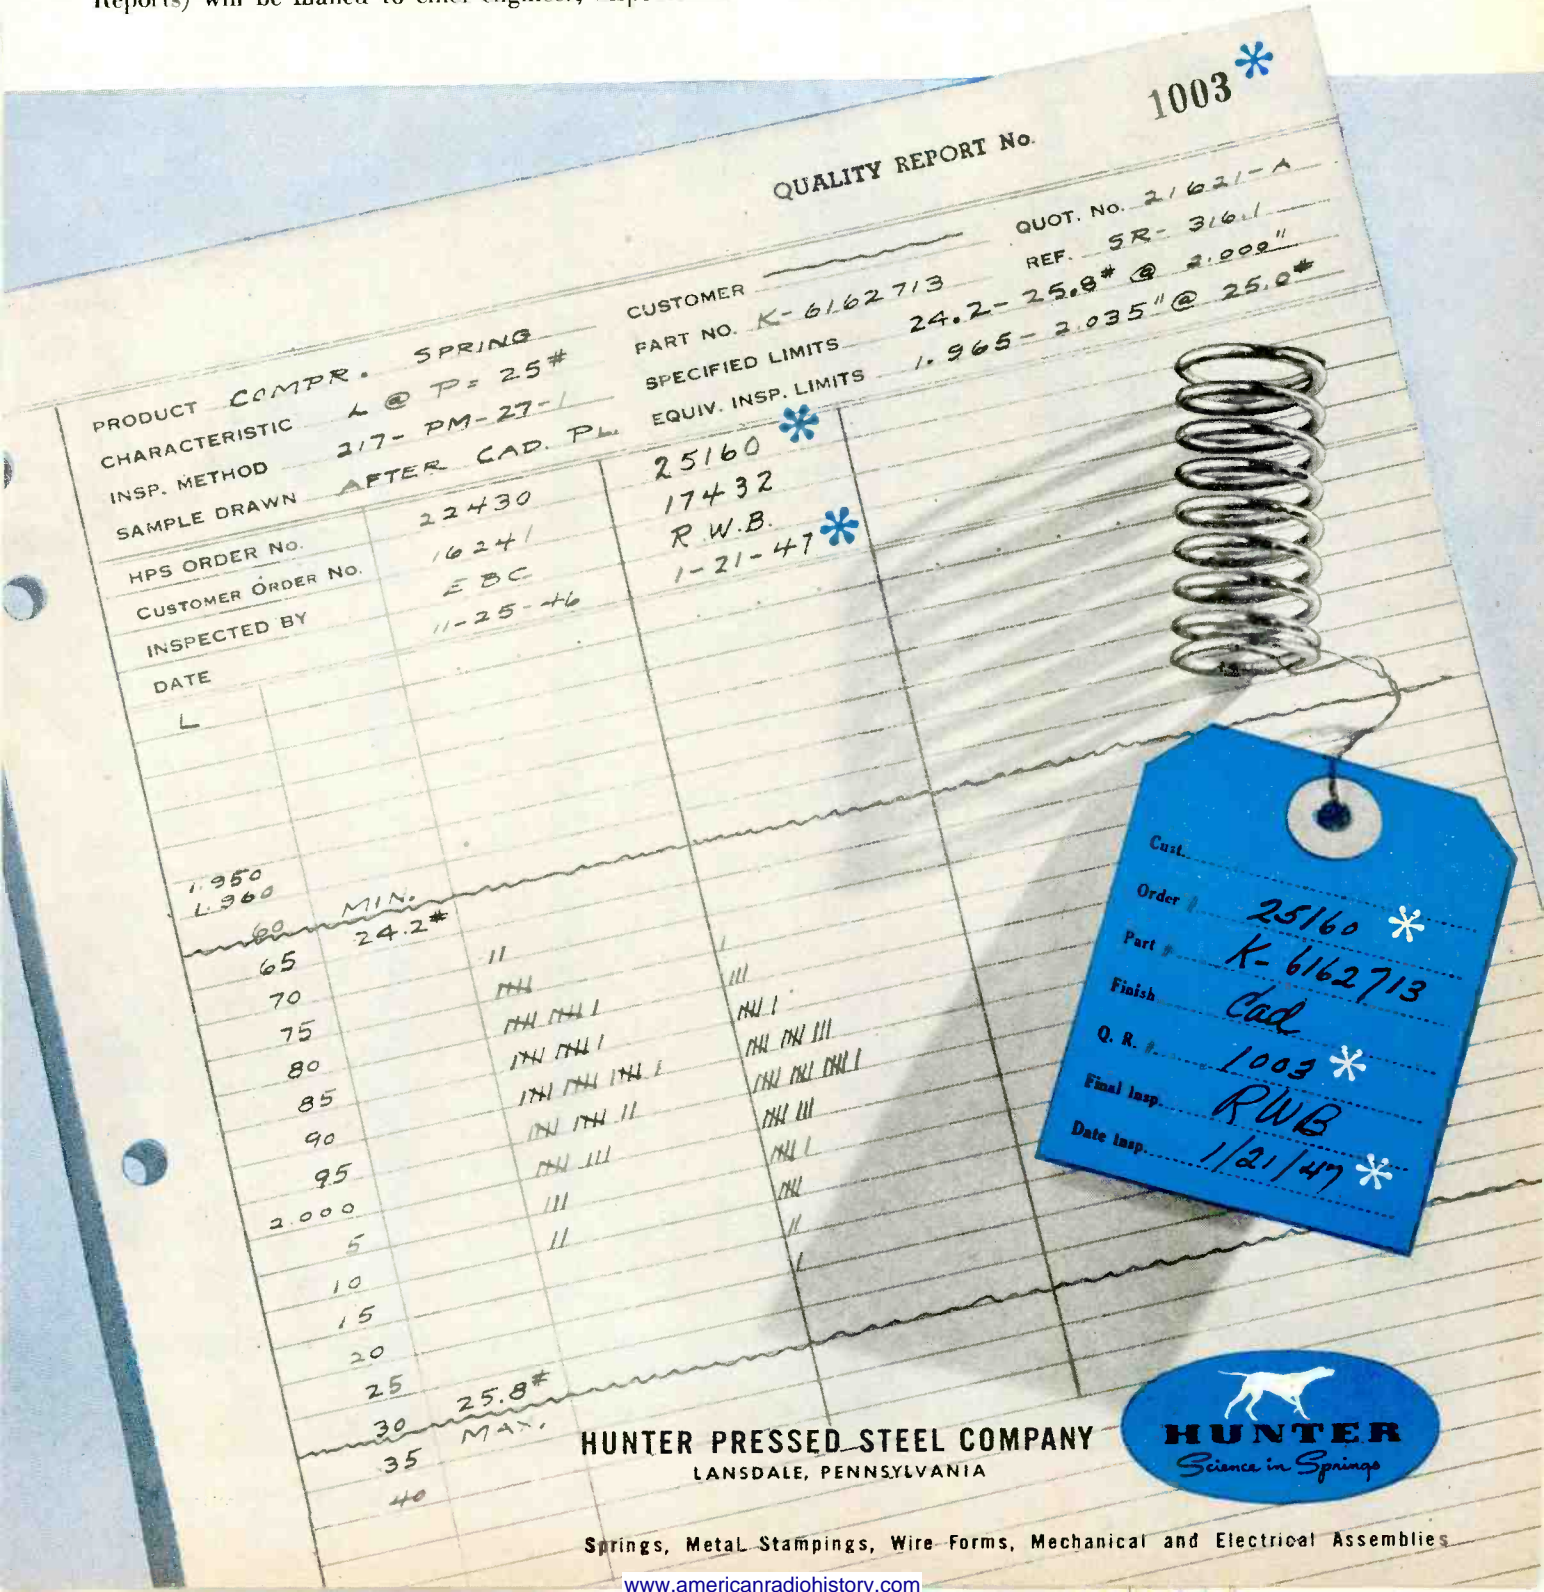 Reports) will be mailed to chief engineer,
1003*
QUALITY REPORT No.
PRODUCT COMPR. SPRING
CHARACTERISTIC L @ P= 25#
INSP. METHOD 217- PM-27-1
SAMPLE DRAWN AFTER CAD. PL.
CUSTOMER
PART NO. K-6162713
SPECIFIED LIMITS 24.2-25.8# @ 2.000"
EQUIV. INSP. LIMITS 1.965-2.035" @ 25.0#
QUOT. No. 21621-A
REF. SR-316.1
HPS ORDER No. 22430 25160*
CUSTOMER ORDER No. 16241 17432
INSPECTED BY EBC R.W.B.
DATE 11-25-46 1-21-47*
L
1.950
1.960
60 MIN.
65 24.2#
70
75
80
85
90
95
2.000
5
10
15
20
25
30 25.8#
35 MAX.
40
Cust.
Order # 25160 *
Part # K-6162713
Finish Cad
Q. R. # 1003 *
Final Insp. RWB
Date Insp. 1/21/47 *
HUNTER PRESSED STEEL COMPANY
LANSDALE, PENNSYLVANIA
HUNTER
Science in Springs
Springs, Metal Stampings, Wire Forms, Mechanical and Electrical Assemblies
www.americanradiohistory.com